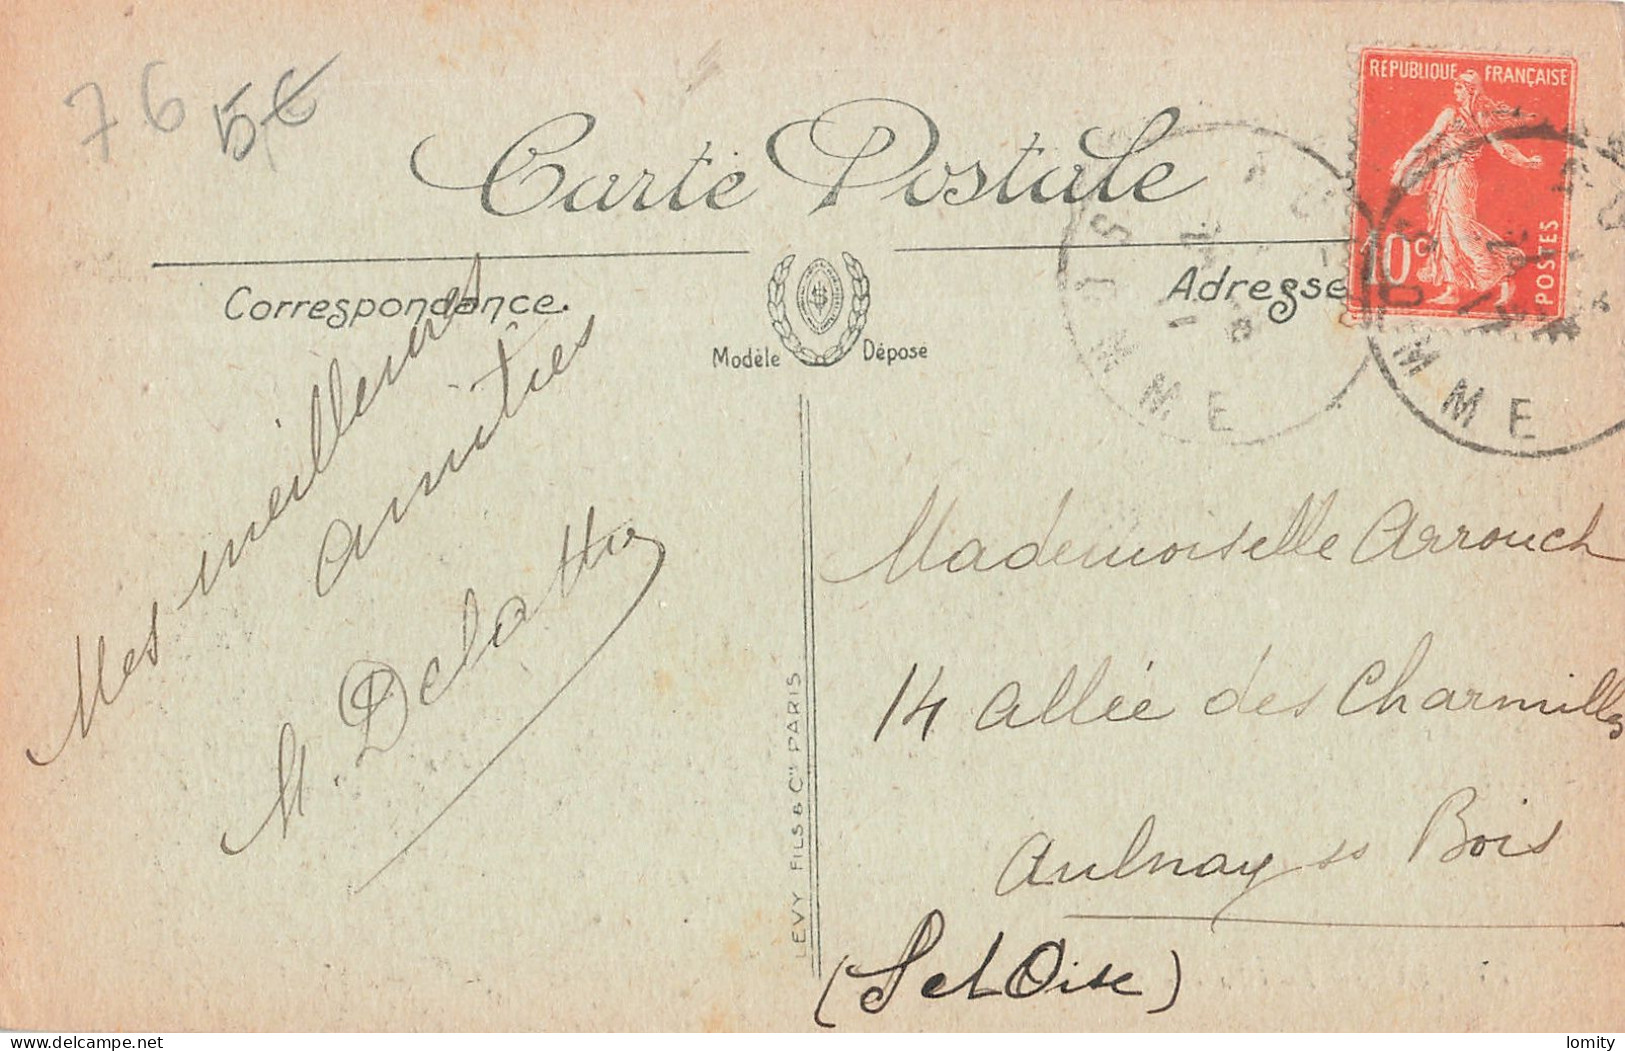 76 5€
Carte Postale
RÉPUBLIQUE FRANÇAISE
10c
POSTES
Correspondance.
Adresse
Modèle Déposé
MME
MME
Mes meilleures
amitiés
M. Delattre
LEVY FILS & Cie PARIS
Mademoiselle Arrouch
14 allée des Charmilles
Aulnay ss Bois
(S et Oise)
delcampe.net
lomity